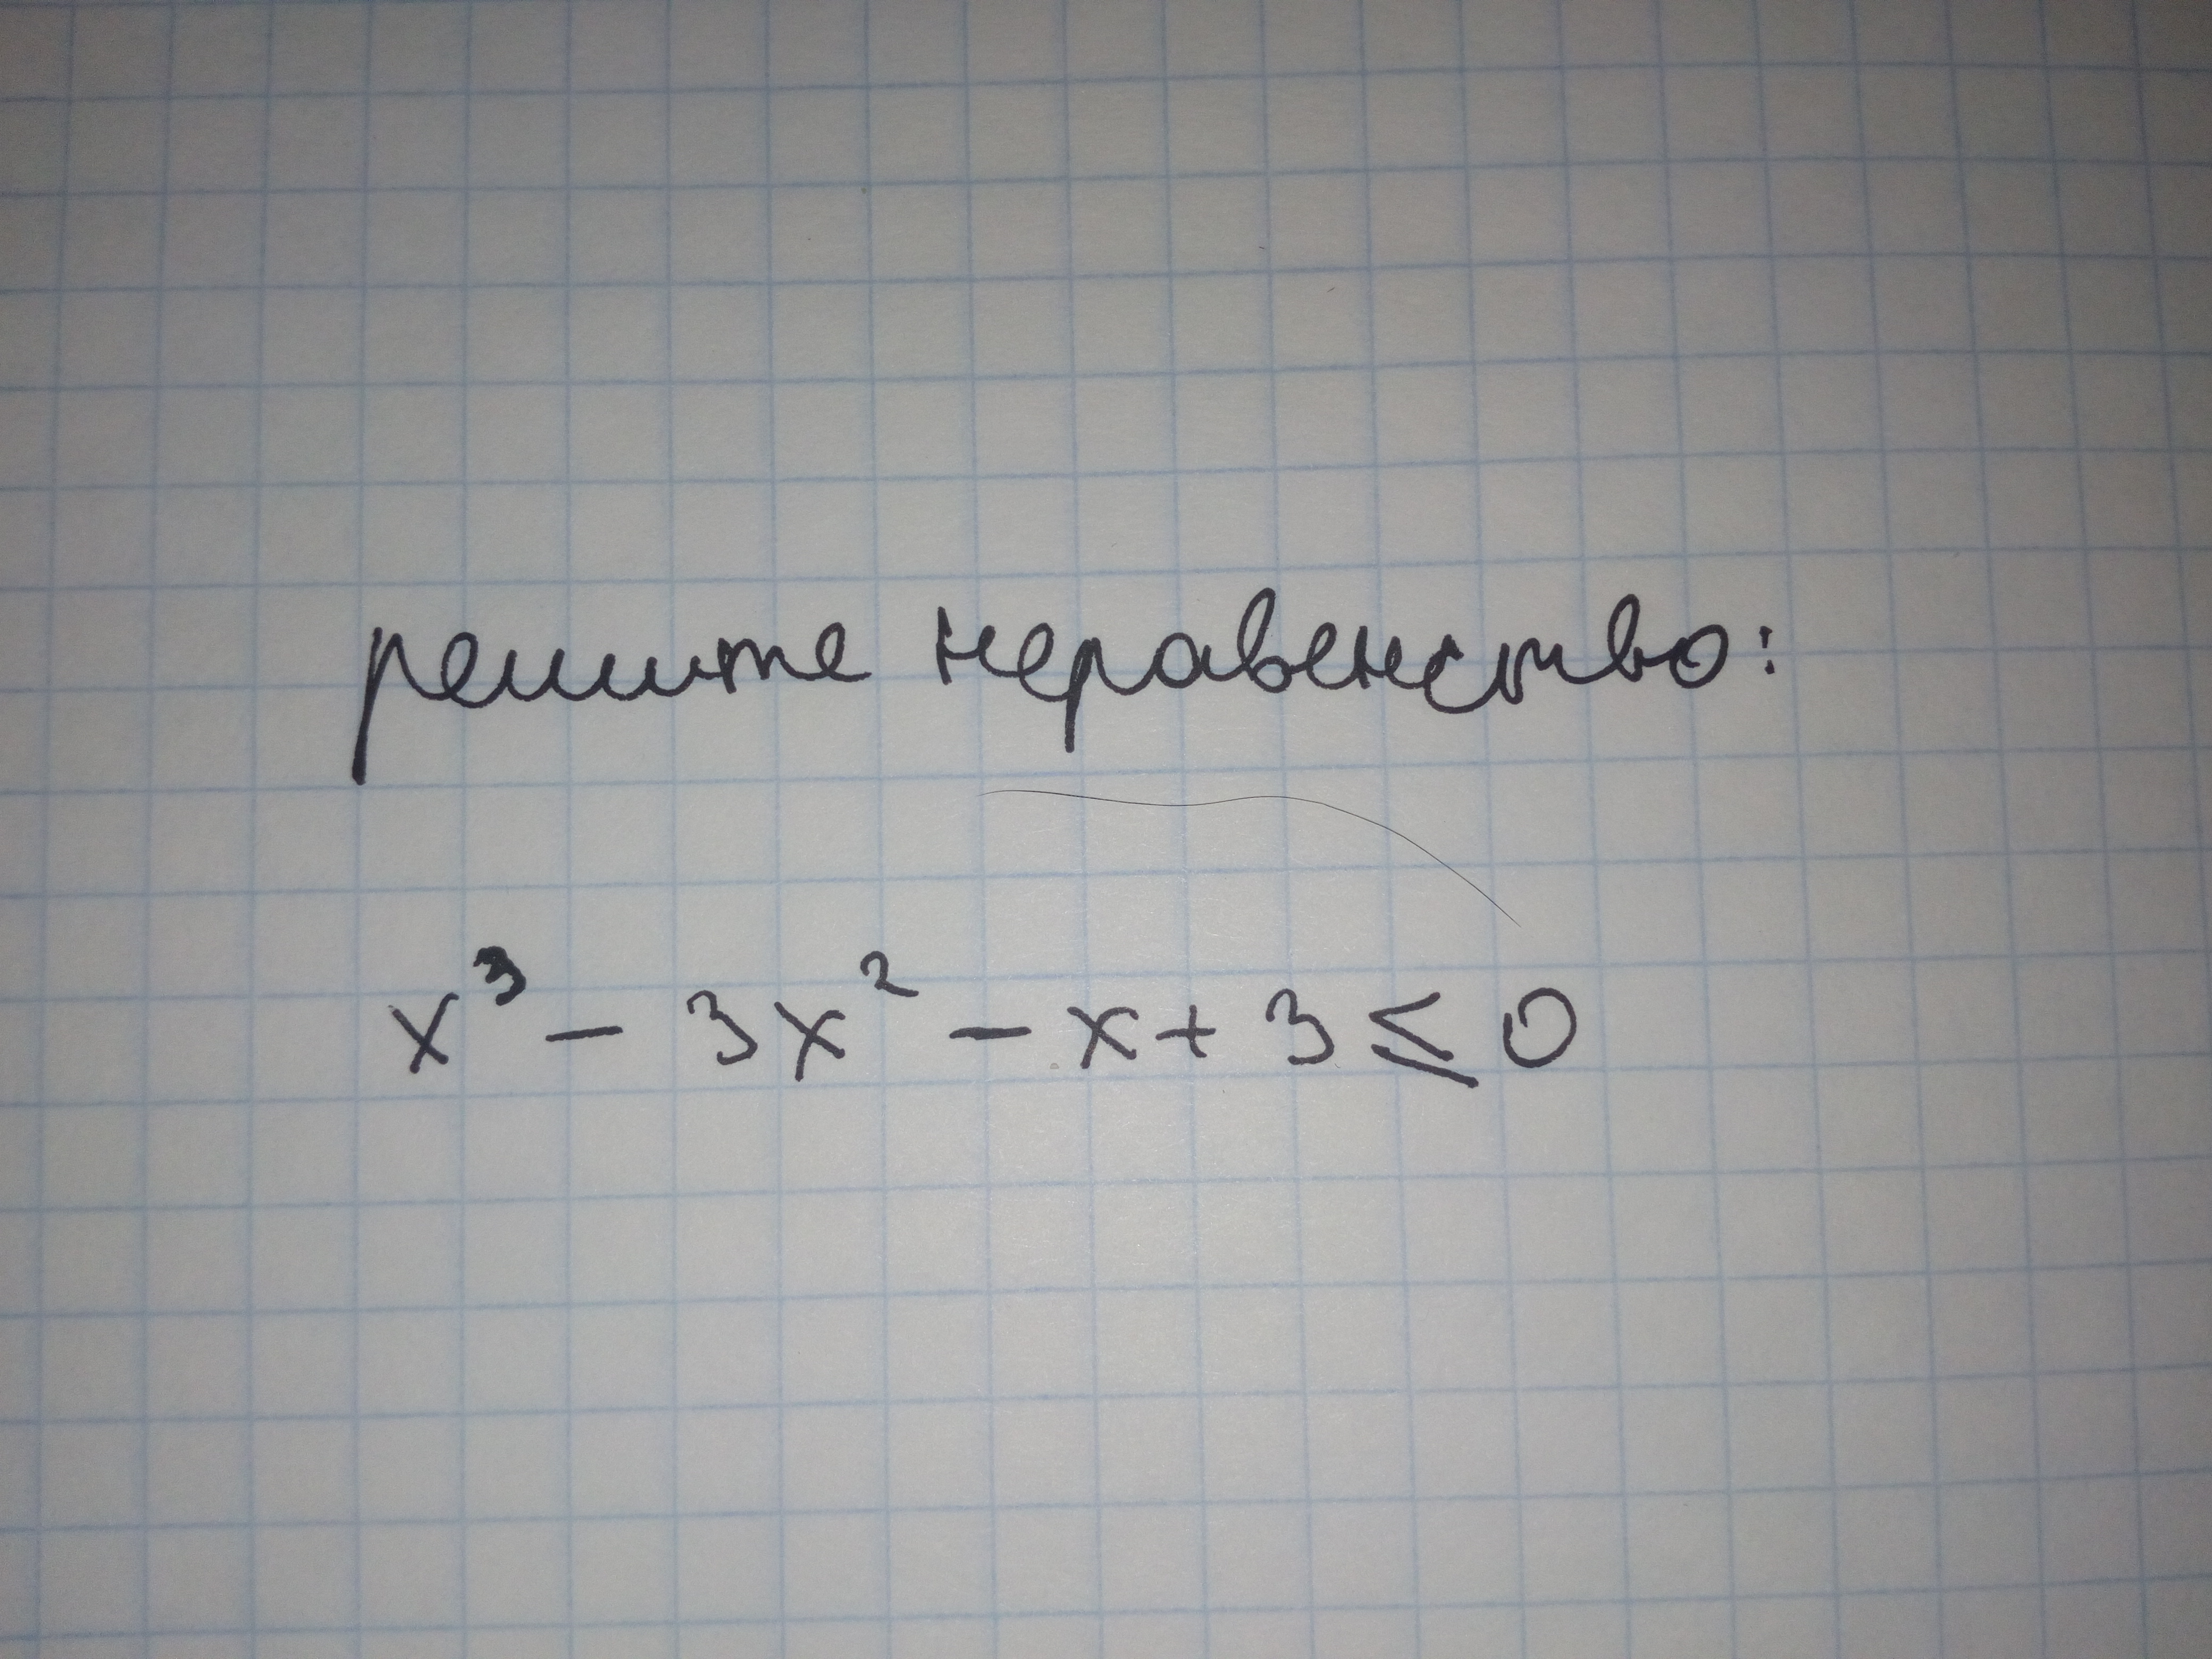 решите неравенство:
x³ - 3x² - x + 3 ≤ 0